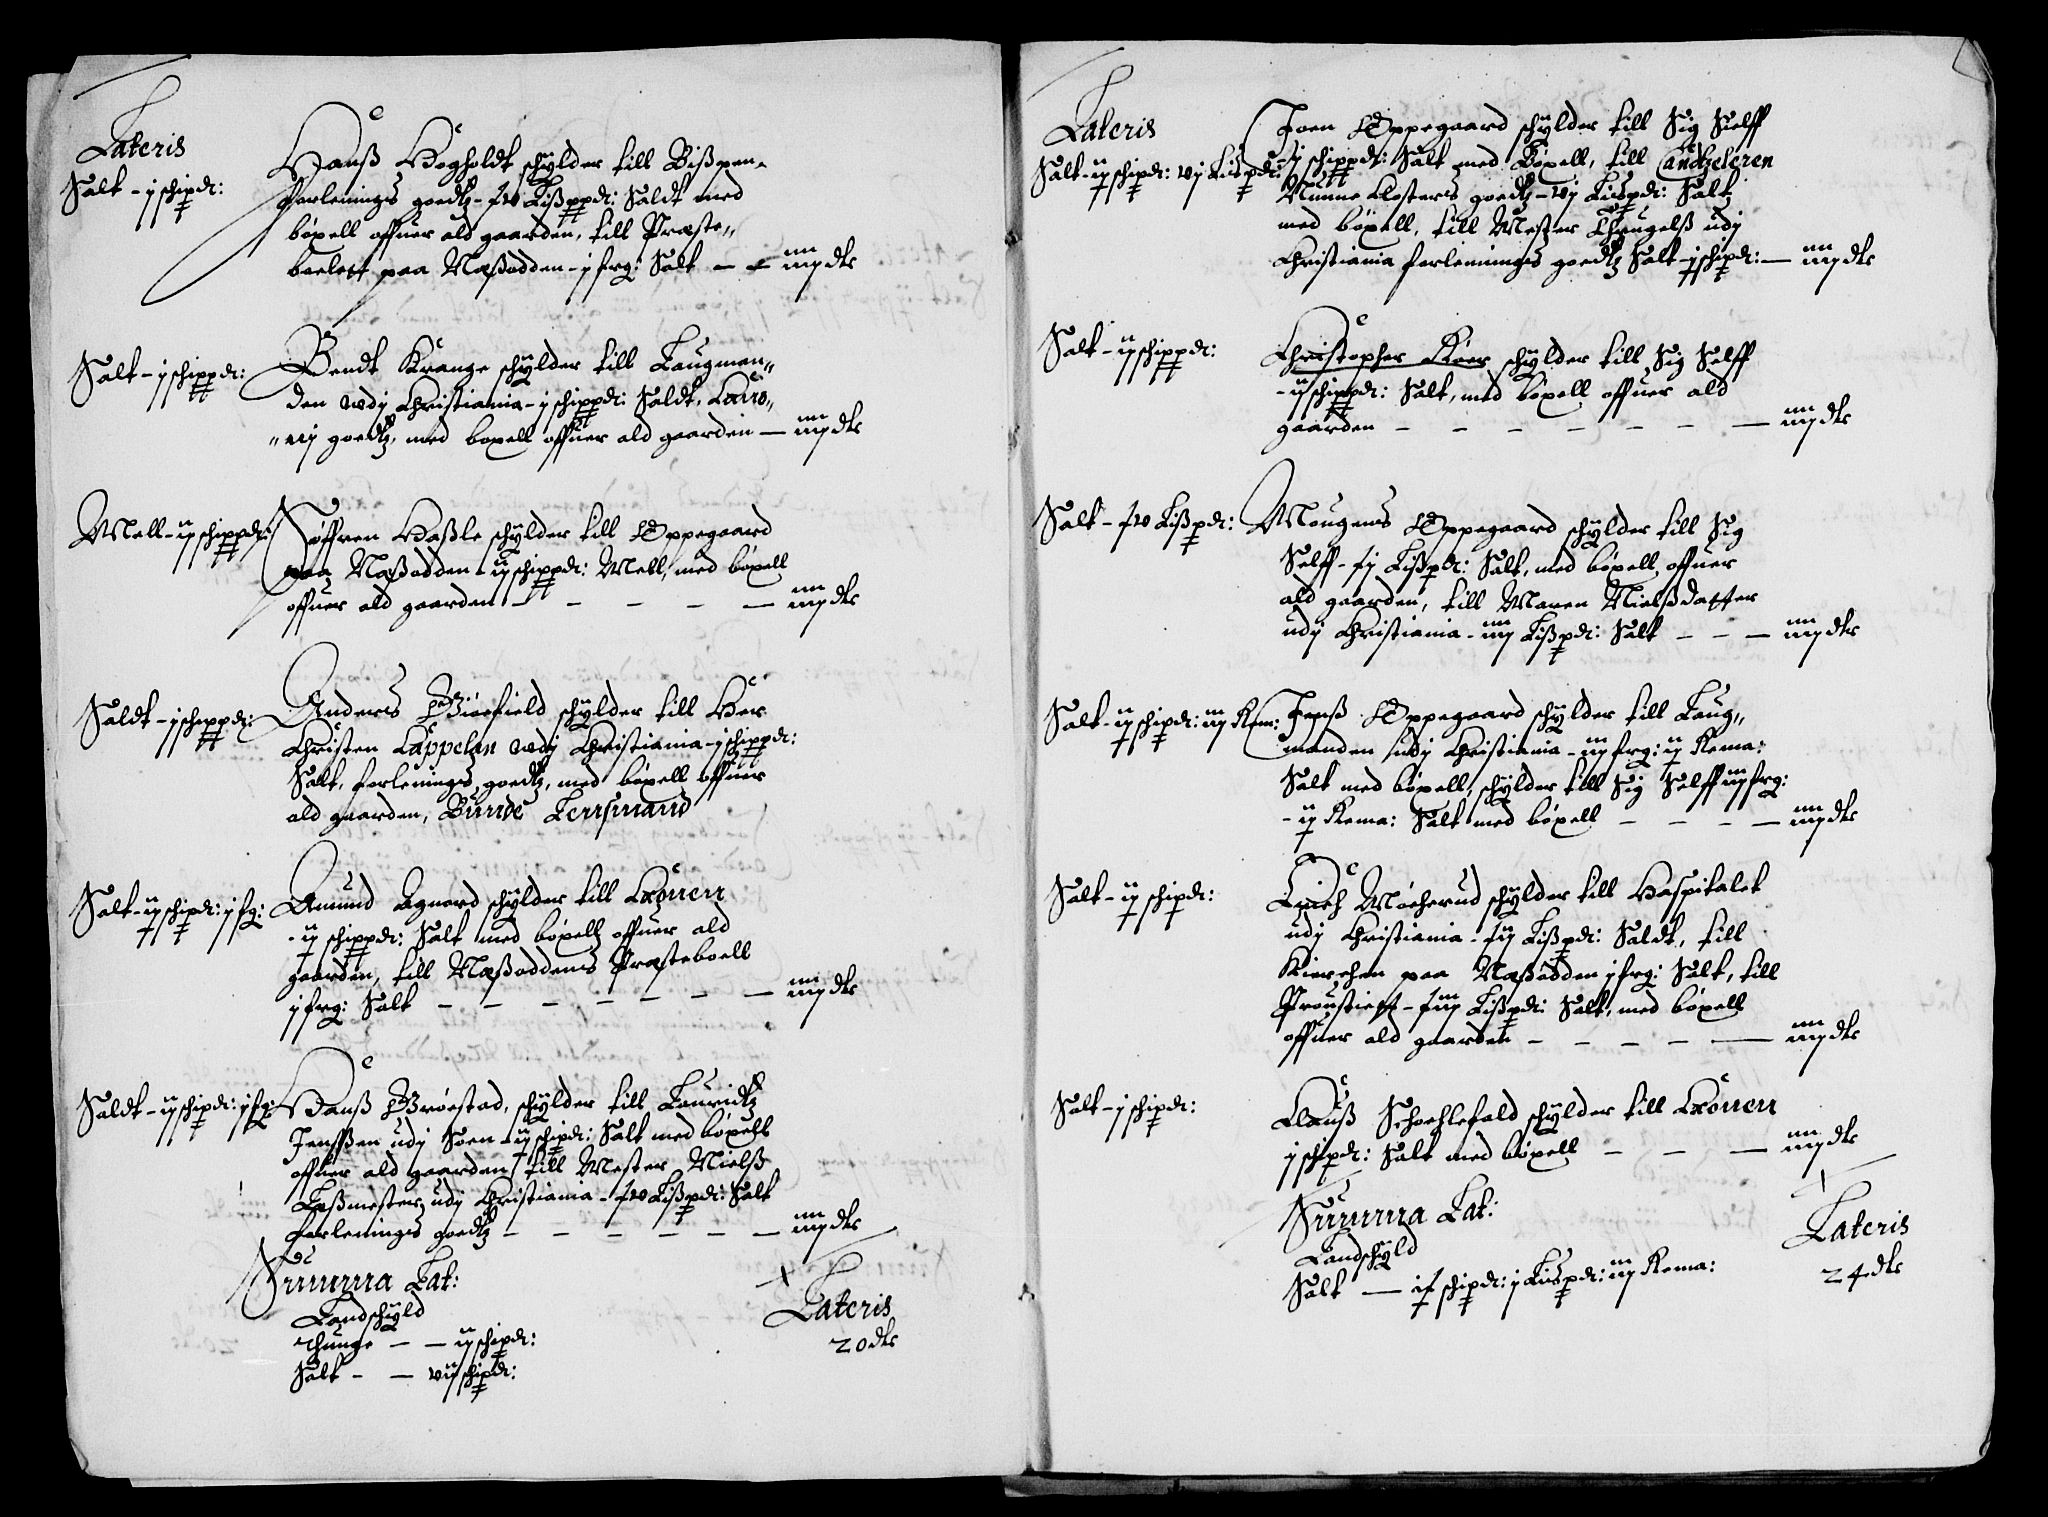 Lateris
Salt - j schipd:
Hanß Hogholdt schÿlder till Bißpen-
forlenings goedtz - xv Lißppd: Saldt med
böxell offuer ald gaarden, till Præste„
boelett paa Næßodden - j frg: Salt - - iiij dlr
Salt - j schippd:
Bendt Krange schÿlder till Laugman„
den udj Christiania - j schippd: Saldt,
goedtz, med boxell offuer ald gaarden - iiij dlr
Mell - ij schippd:
Söffren Haßle schÿlder till Oppegaard
paa Næßodden - ij schippd: Mell, med böxell
offuer ald gaarden - - - - - iiij dlr
Saldt - j schippd:
Anders schÿlder till Her
Christen Cappelan udj Christiania - j schippd:
Salt, forlenings goedtz, med böxell offuer
ald gaarden, Bunde Lensmand
Salt - ij schipd: j fg:
Amund Agnord schÿlder till Cronen
- ij schippd: Salt med böxell offuer ald
gaarden, till Næßoddens Præsteboell
j frg: Salt - - - - - - - iiij dlr
Saldt - ij schipd: j fg:
Hanß Gröestad, schÿlder till Lauridtz
Jenßen udj Soen - ij schipd: Salt med böxell
offuer ald gaarden, till Mester Nielß
Leßmester udj Christiania - xv Lißpd: Salt
forlenings goedtz - - - - - - iiij dlr
Summa Lat:
Landschÿld
Thunge - - ij schipd:
Salt - - vij schipd:
Lateris
20 dlr
Lateris
Salt - ij schipd: vj Lißpd:
Joen Oppegaard schÿlder till Sig Sielff
j schippd: Salt med Böxell, till Candtzeleren
Nunne Closters goedtz - vj Lispd: Salt
med böxell, till Mester Thrugelß udj
Christiania forlennings goedtz Salt - j schipd: - iiij dlr
Salt - ij schippd:
Christopher schÿlder till Sig Selff
- ij schippd: Salt, med böxell offuer ald
gaarden - - - - - - - iiij dlr
Salt - xv Lißpd:
Mougens Oppegaard schÿlder till Sig
Selff - xj Lißpd: Salt, med böxell offuer
ald gaarden, till Maren Nielßdatter
udj Christiania - iiij Lißpd: Salt - - - iiij dlr
Salt - ij schipd: iij Rem:
Jenß Oppegaard schÿlder till Laug„
manden udj Christiania - iij frg: ij Rema:
Salt med böxell, schÿlder till Sig Selff iij frg:
- ij Rema: Salt med böxell - - - - iiij dlr
Salt - ij schipd:
schÿlder till Haspitalet
udj Christiania - xij Lißpd: Saldt, till
Kierchen paa Næßodden j frg: Salt, till
Proustiet - xiij Lißpd: Salt, med böxell
offuer ald gaarden - - - - - iiij dlr
Salt - j schipd:
Clauß schÿlder till Cronen
j schipd: Salt med böxell - - - iiij dlr
Summa Lat:
Landschÿld
Salt - ix schipd: j Lispd: iij Rema:
Lateris
24 dlr